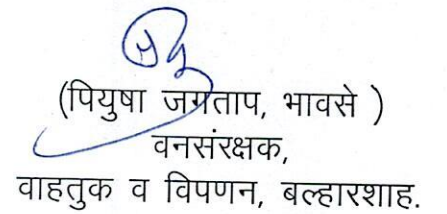 (पियुषा जगताप, भावसे )
वनसंरक्षक,
वाहतुक व विपणन, बल्हारशाह.